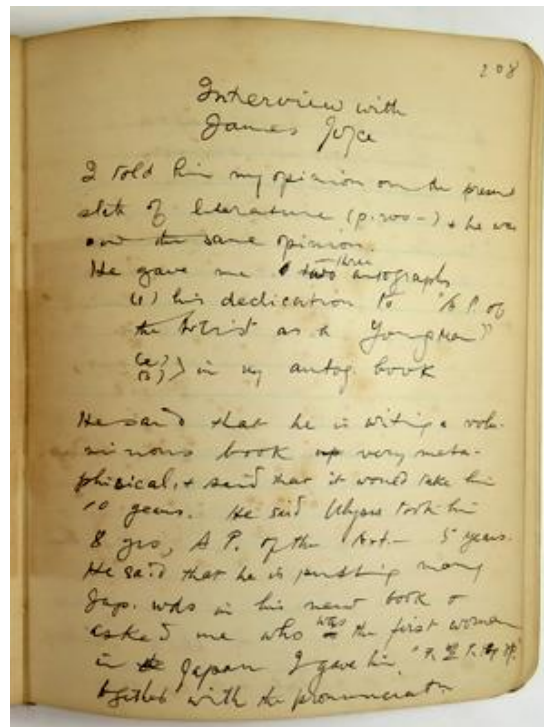 208
Interview with
James Joyce
I told him my opinion on the present
state of literature (p.200-) + he was
on the same opinion.
He gave me two three autographs
(1) his dedication to "A P. of
the Artist as a Young Man"
(2) (3) in my autog. book
He said that he is writing a volu-
minous book very meta-
phisical, + said that it would take him
10 years. He said Ulysses took him
8 yrs, A P. of the Art.- 5 years.
He said that he is putting many
Jap. wds in his new book &
asked me who was the first woman
in Japan I gave him
together with the pronunciatn